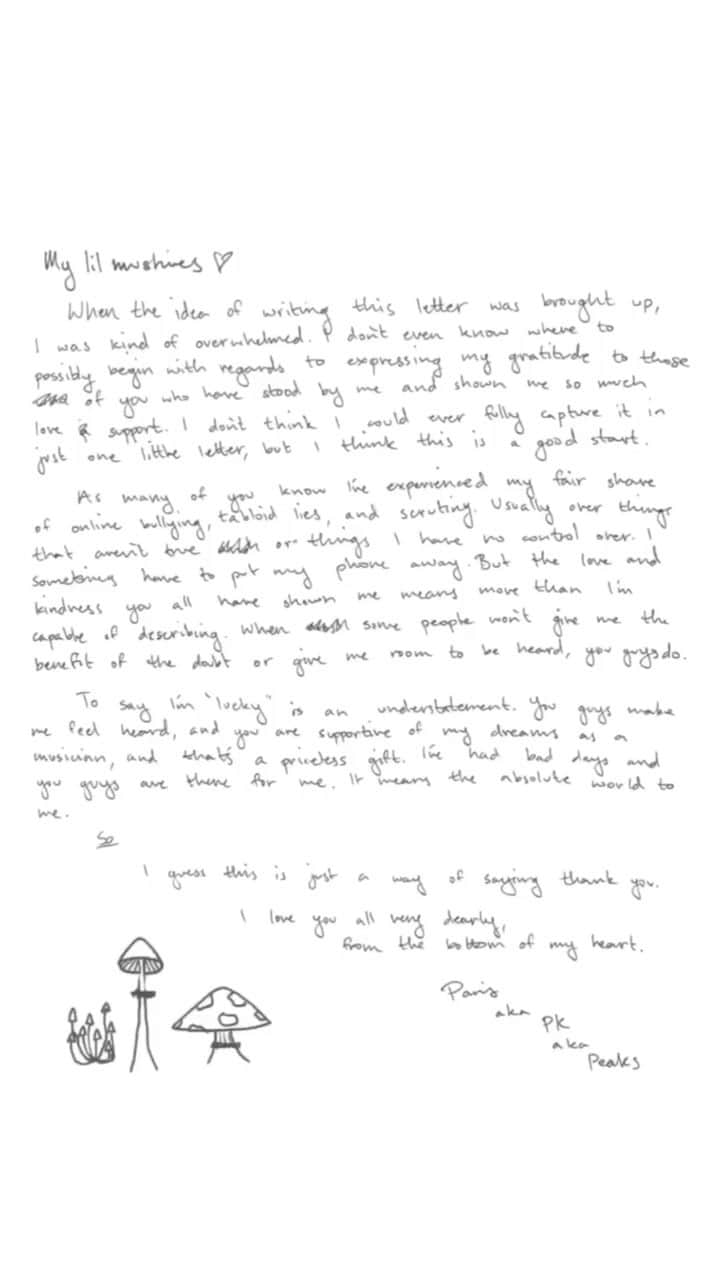 My lil mushies ♡
When the idea of writing this letter was brought up,
I was kind of overwhelmed. I don't even know where to
possibly begin with regards to expressing my gratitude to those
of you who have stood by me and shown me so much
love & support. I don't think I could ever fully capture it in
just one little letter, but I think this is a good start.
As many of you know I've experienced my fair share
of online bullying, tabloid lies, and scrutiny. Usually over things
that aren't true or things I have no control over. I
sometimes have to put my phone away. But the love and
kindness you all have shown me means more than I'm
capable of describing. When some people won't give me the
benefit of the doubt or give me room to be heard, you guys do.
To say I'm "lucky" is an understatement. You guys make
me feel heard, and you are supportive of my dreams as a
musician, and that's a priceless gift. I've had bad days and
you guys are there for me. It means the absolute world to
me.
So
I guess this is just a way of saying thank you.
I love you all very dearly,
from the bottom of my heart.
Paris
aka
PK
aka
Peaks